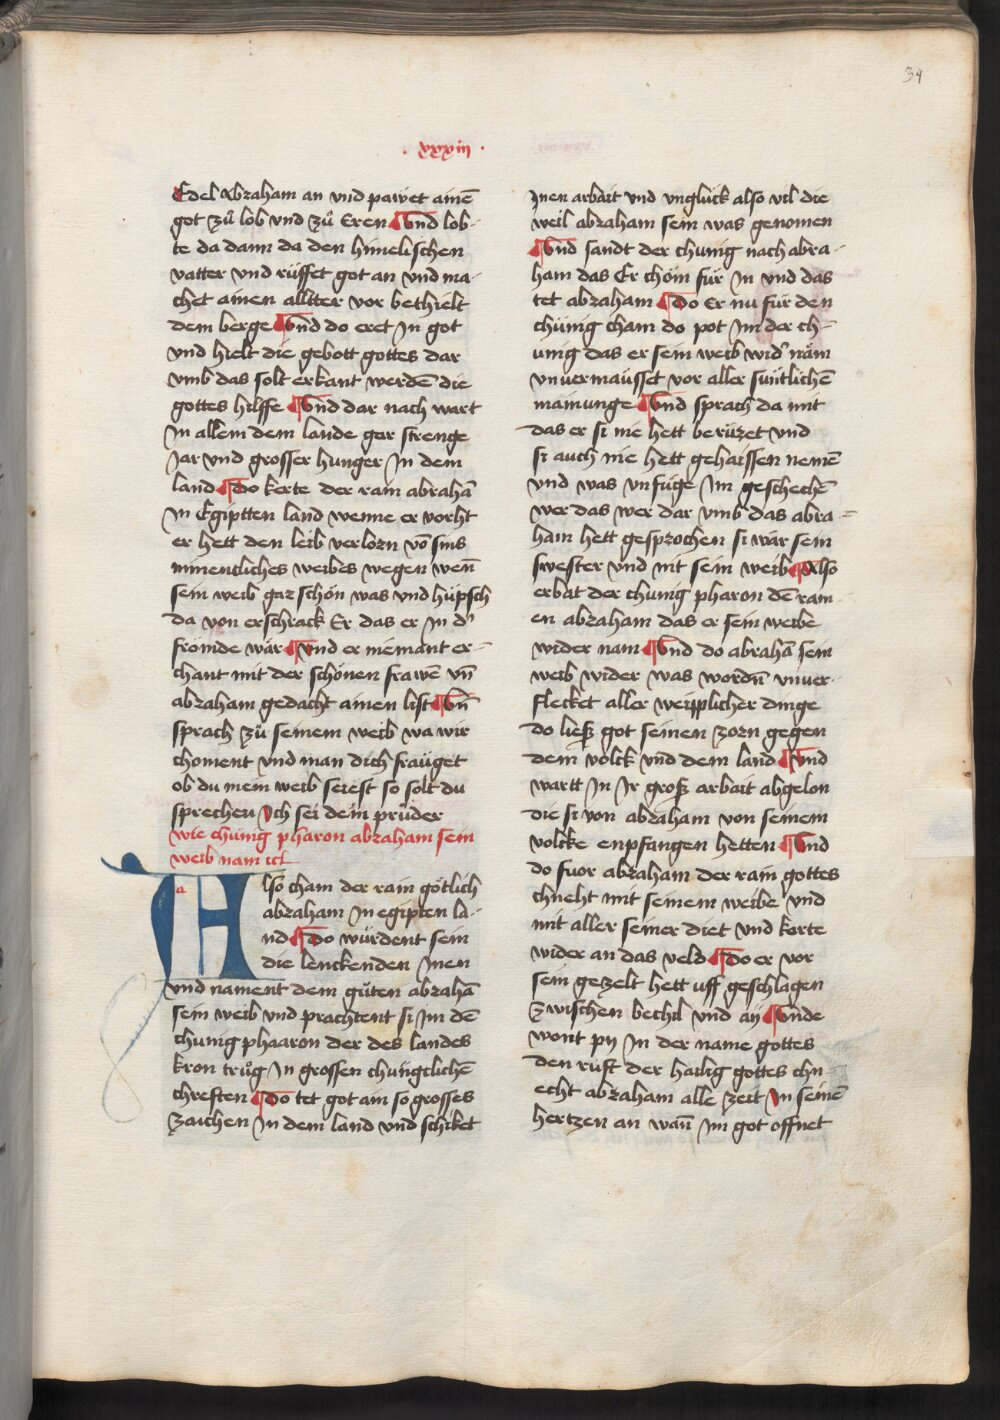 34
· xxxiii ·
Edel Abraham an vnd pawet ainē
got zů lob vnd zů Eren Vnd lob-
te da dann da den himelischen
vatter vnd růffet got an vnd ma-
chet ainen alltter vor bethielt
dem berge Vnd do eret Jn got
vnd hielt die gebott gottes dar
vmb das solt erkant werdē die
gottes hilffe Vnd dar nach wart
Jn allem dem lande gar strenge
Jar vnd grosser hunger Jn dem
land Do kerte der rain abrahā
Jn Egiptten land wenne er vorht
er hett den leib verlorn vō sins
minentliches weibes wegen wen̄
sein weib gar schön was vnd hüpsch
da von erschrack Er das er Jn d'
frömde wär Vnd er niemant er-
chant mit der schönen frawē vn̄
abraham gedacht ainen list Vn̄
sprach zů seinem weib wa wir
choment vnd man dich fraüget
ob du mein weib seiest so solt du
sprechen Jch sei dein průder
wie chünig pharon abraham sein
weib nam ict
a
Also cham der rain götlich
abraham Jn egipten la-
nd Do würdent sein
die lenckenden Jnen
vnd nament dem gůten abrahā
sein weib vnd prachtent si Jm dē
chunig phaaron der des landes
kron trůg Jn grossen chüngclichē
chreften Do tet got ain so grosses
zaichen Jn dem land vnd schiket
Jnen arbait vnd vnglück also vil die
weil abraham sein was genomen
Vnd sandt der chunig nach abra-
ham das Er chöm für Jn vnd das
tet abraham Do Er nu für den
chünig cham do pot Jm der ch-
unig das er sein weib wid' näm
vnuermausset vor aller suntlichē
mainunge Vnd sprach da mit
das er si nie hett berüret vnd
si auch nie hett gehaissen nemē
vnd was vnfüge Jm geschechē
wer das wer dar vmb das abra-
ham hett gesprochen si wär sein
swester vnd nit sein weib Also
erbat der chunig pharon dē rain
en abraham das er sein weibe
wider nam Vnd do abrahā sein
weib wider was wordn̄ vnuer-
flecket aller weipplicher dinge
do liesz got seinen zorn gegen
dem volck vnd dem land Vnd
wartt Jn Jr grosz arbait abgelon
die si von abraham von seinem
volcke enpfangen hetten Vnd
do fuor abraham der rain gottes
chneht mit seinem weibe vnd
mit aller seiner diet vnd karte
wider an das veld Do er vor
sein gezelt hett uff geschlagen
zwischen bechel vnd aÿ Vnde
wont pÿ Jn der name gottes
den rüft der hailig gottes chn-
echt abraham alle zeit Jn seinē
hertzen an wan̄ Jm got offnet